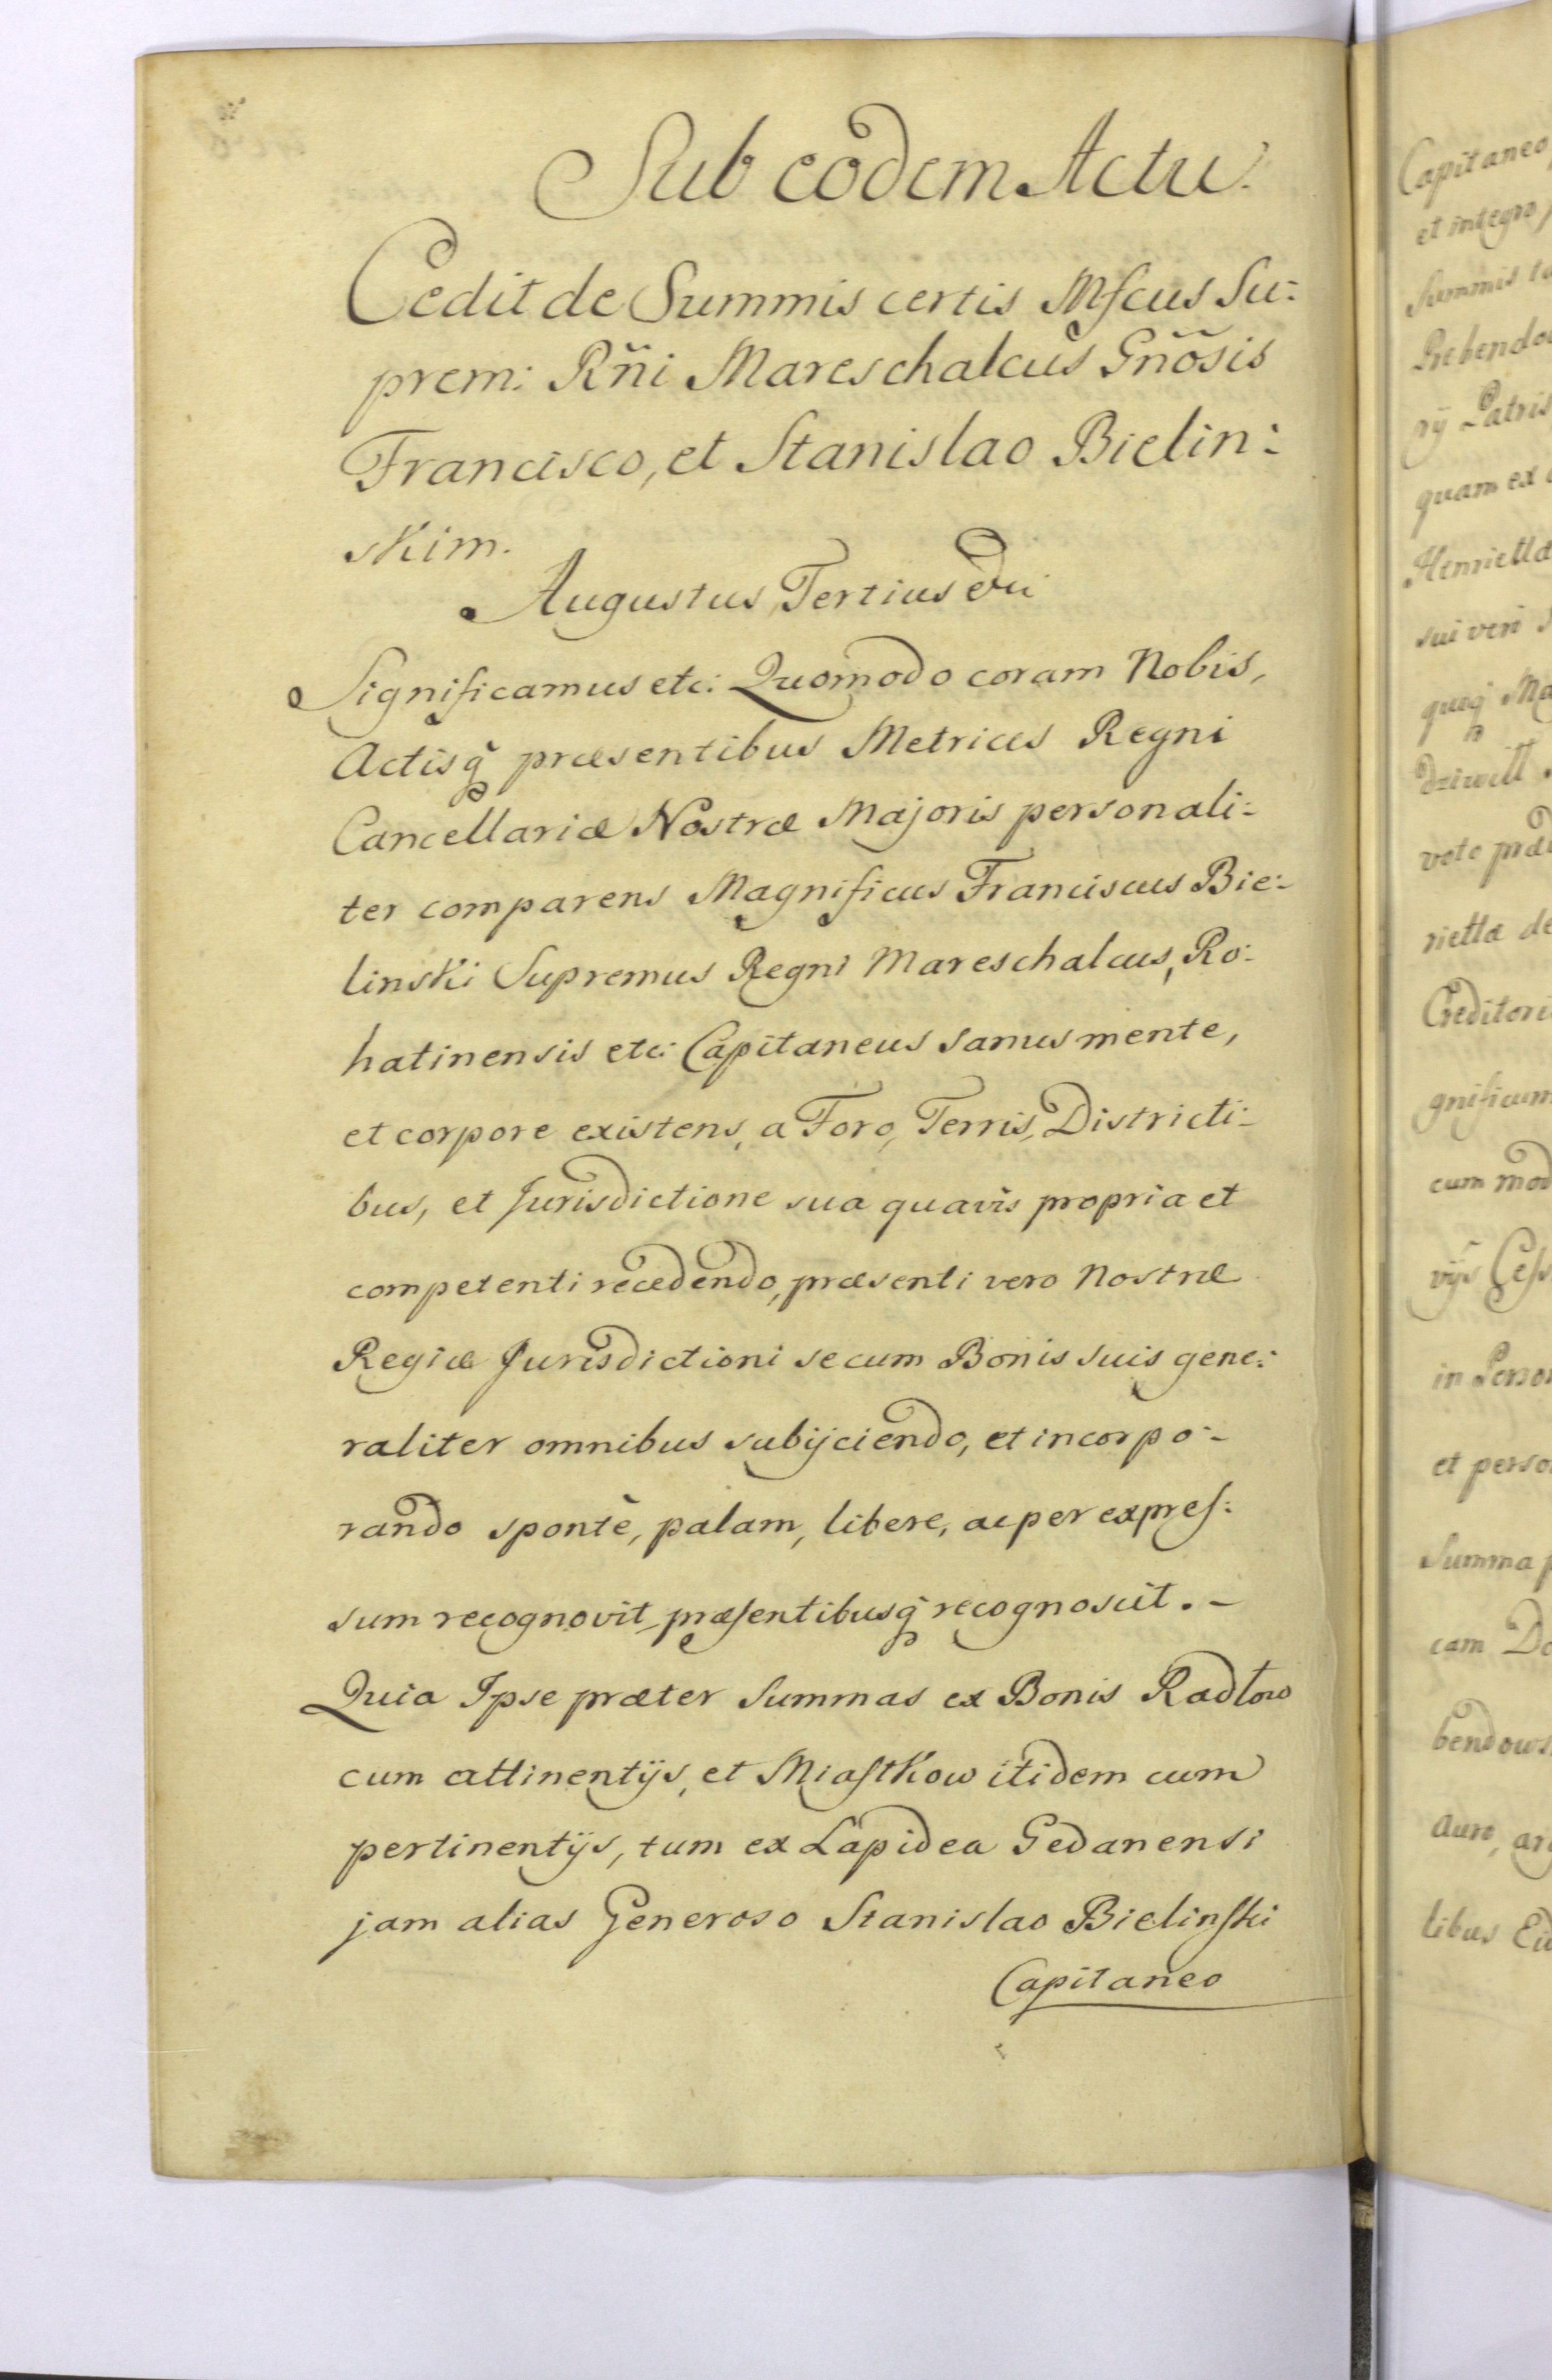 Sub eodem Actu.
Cedit de Summis certis Mfcus Su:
prem: Rñi Mareschalcus Gñosis
Francisco, et Stanislao Bielin:
skim.
Augustus Tertius
Significamus etc: Quomodo coram Nobis,
Actisq̃ præsentibus Metrices Regni
Cancellariæ Nostræ Majoris personali:
ter comparens Magnificus Franciscus Bie:
linski Supremus Regni Mareschalcus, Ro:
hatinensis etc: Capitaneus sanus mente,
et corpore existens, a Foro, Terris, Districti:
bus, et Jurisdictione sua quavis propria et
competenti recedendo, præsenti vero Nostræ
Regiæ Jurisdictioni se cum Bonis suis gene:
raliter omnibus subijciendo, et incorpo:
rando sponte, palam, libere, ac per expres:
sum recognovit, præsentibusq̃ recognoscit. -
Quia Ipse præter Summas ex Bonis Radłow
cum attinentijs, et Miastkow itidem cum
pertinentijs, tum ex Lapidea Gedanensi
jam alias Generoso Stanislao Bielinski
Capitaneo
Capitaneo
et integro
Summis
Patris
quam ex
Henriettæ
sui veri
voto
riettæ de
cum
in
et
Summa
cam
auro,
libus